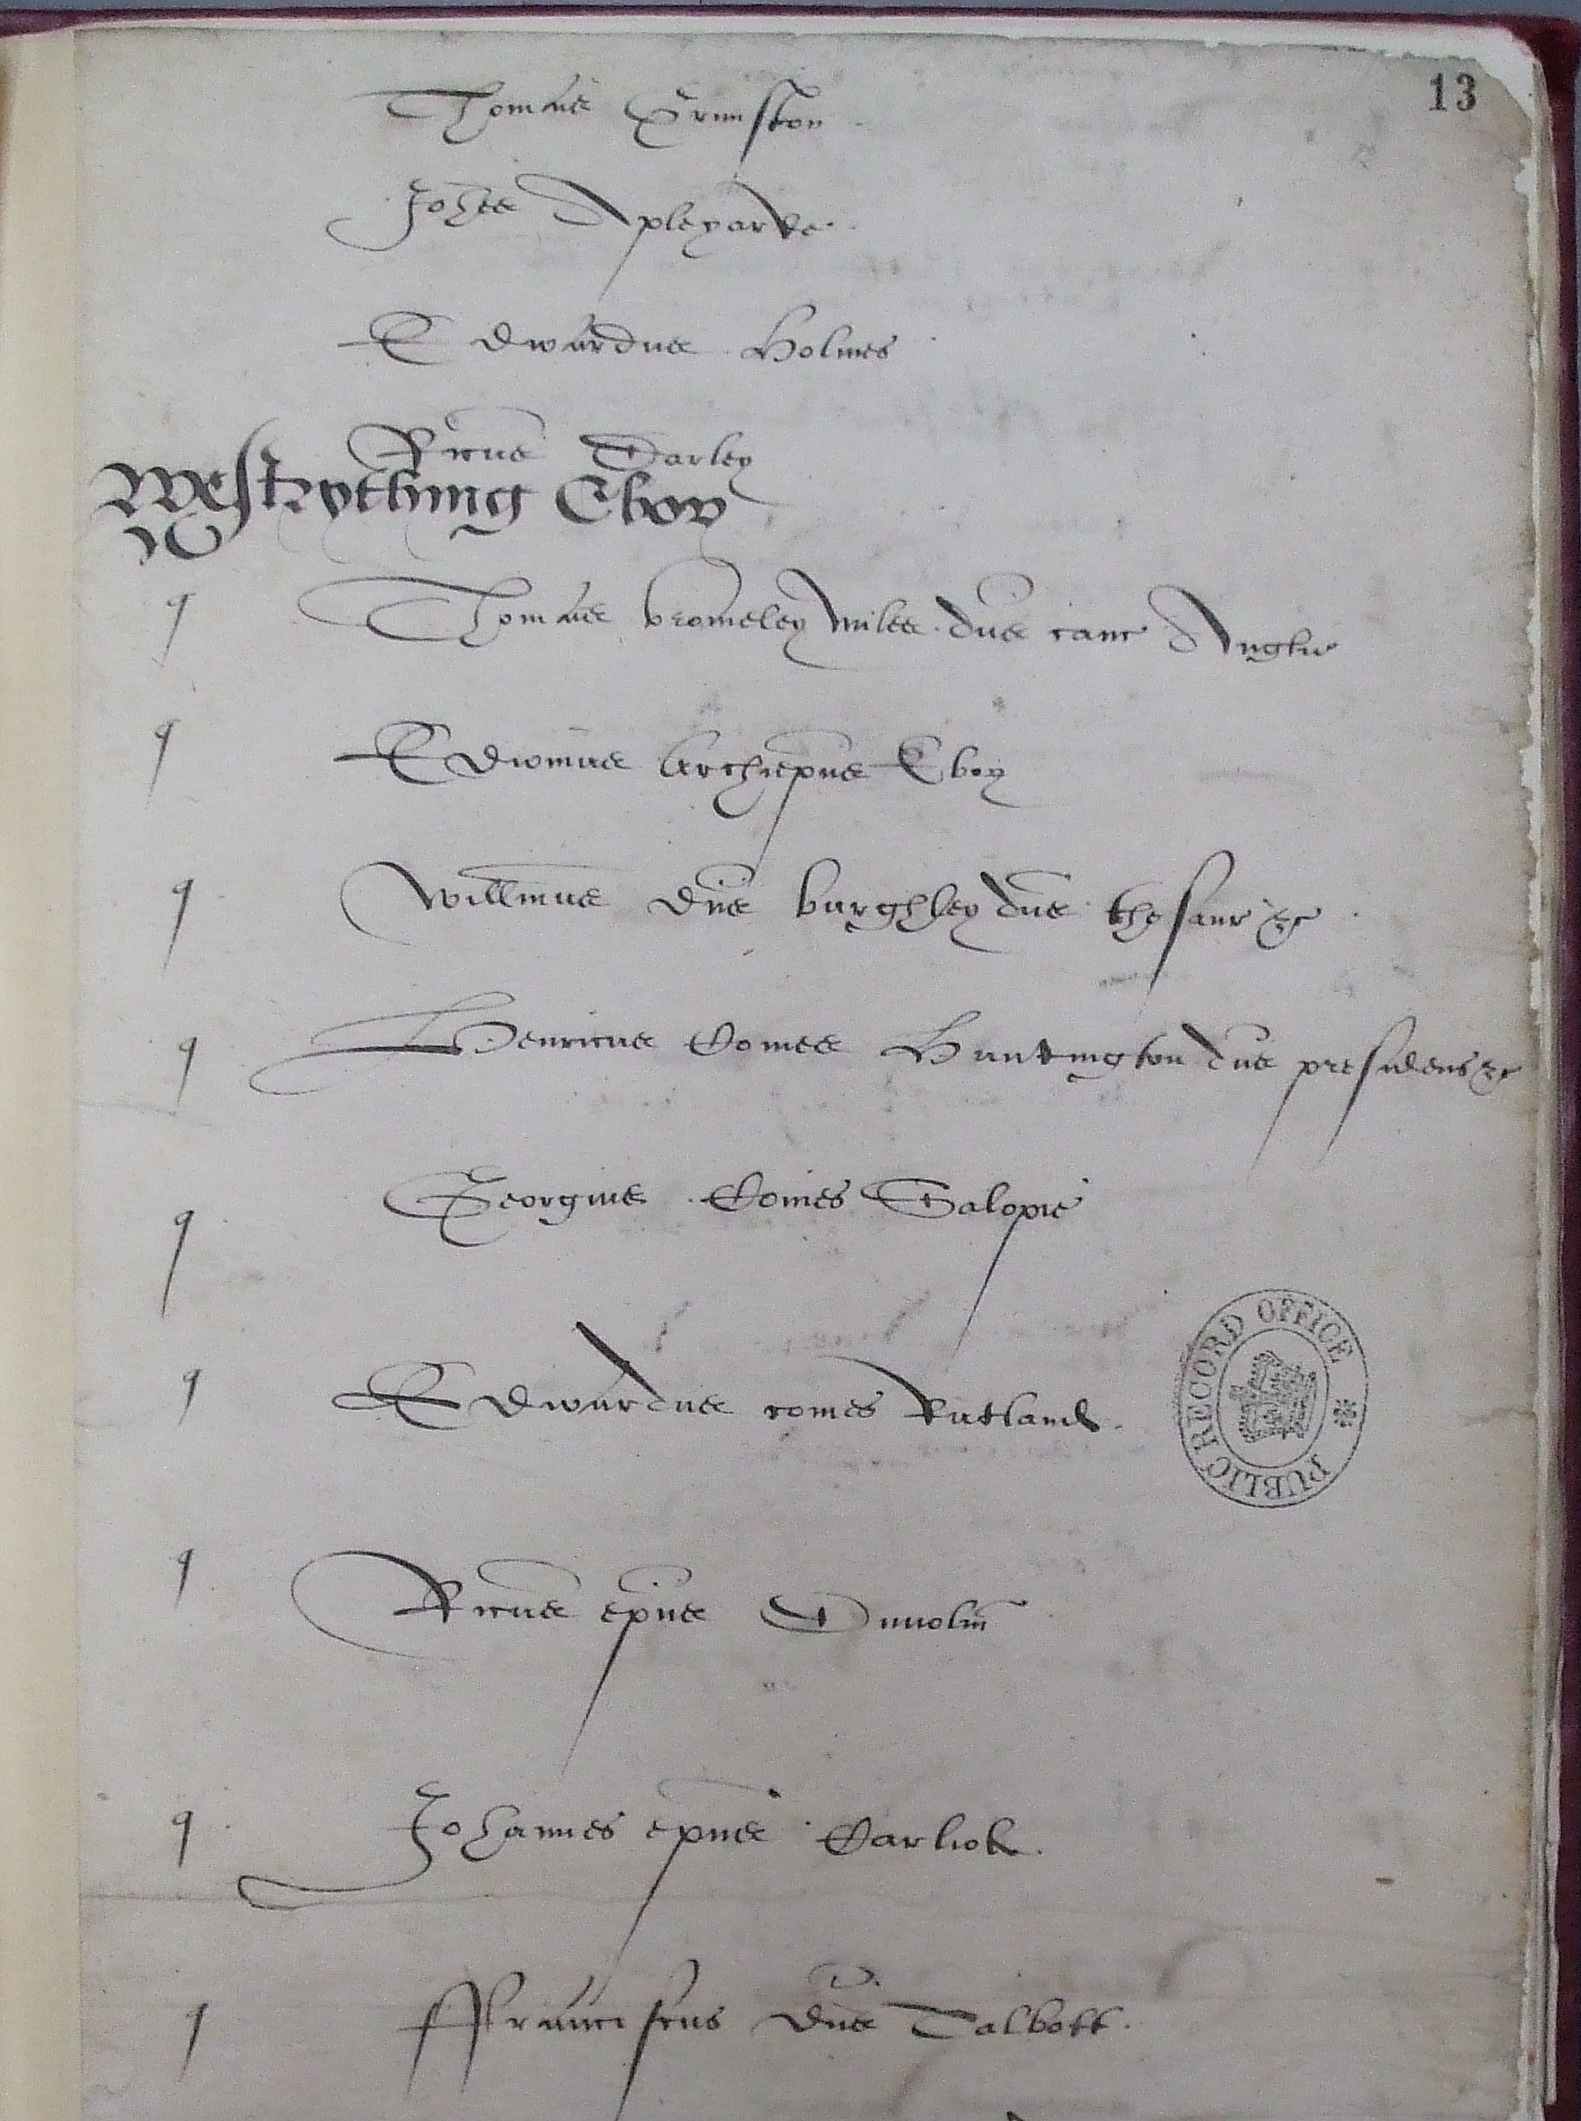 13
Thomas Grimston
Johes Apleyarde
Edwardus Holmes
Ricus Darley
Westrything Ebor
q Thomas Bromeley miles dns canc Anglie
q Edwinus Archiepus Ebor
q Willmus dns Burghley dns thesaur &c
q Henricus Comes Huntington dns presidens &c
q Georgius Comes Salopie
q Edwardus comes Rutland
q Ricus epus Dunolm
q Johannes epus Carliol
q Ffranciscus dns Talbott
PUBLIC RECORD OFFICE